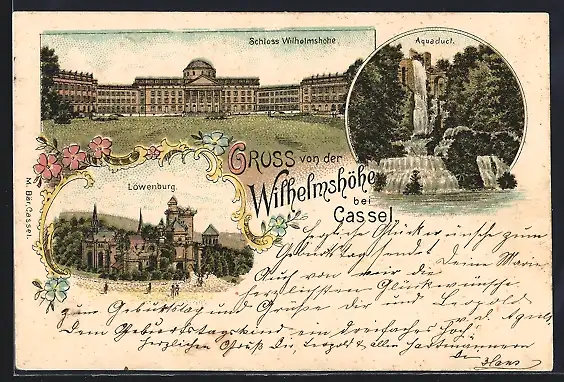 Schloss Wilhelmshöhe.
Aquaduct.
Gruss von der
Wilhelmshöhe
bei
Cassel.
Löwenburg.
M. Bär, Cassel.
Herzliche Glückwünsche zum
Geburtstag sendet Deine Marie
Auch von mir die
herzlichsten Glückwünsche
zum Geburtstag und Grüsse dir und Leopold
v. d. Agnes
Dem Geburtstagskind ein dreifaches Hoch!
Herzlichen Gruß Dir, Leopold & allen Hartmännern
Dein
Hans